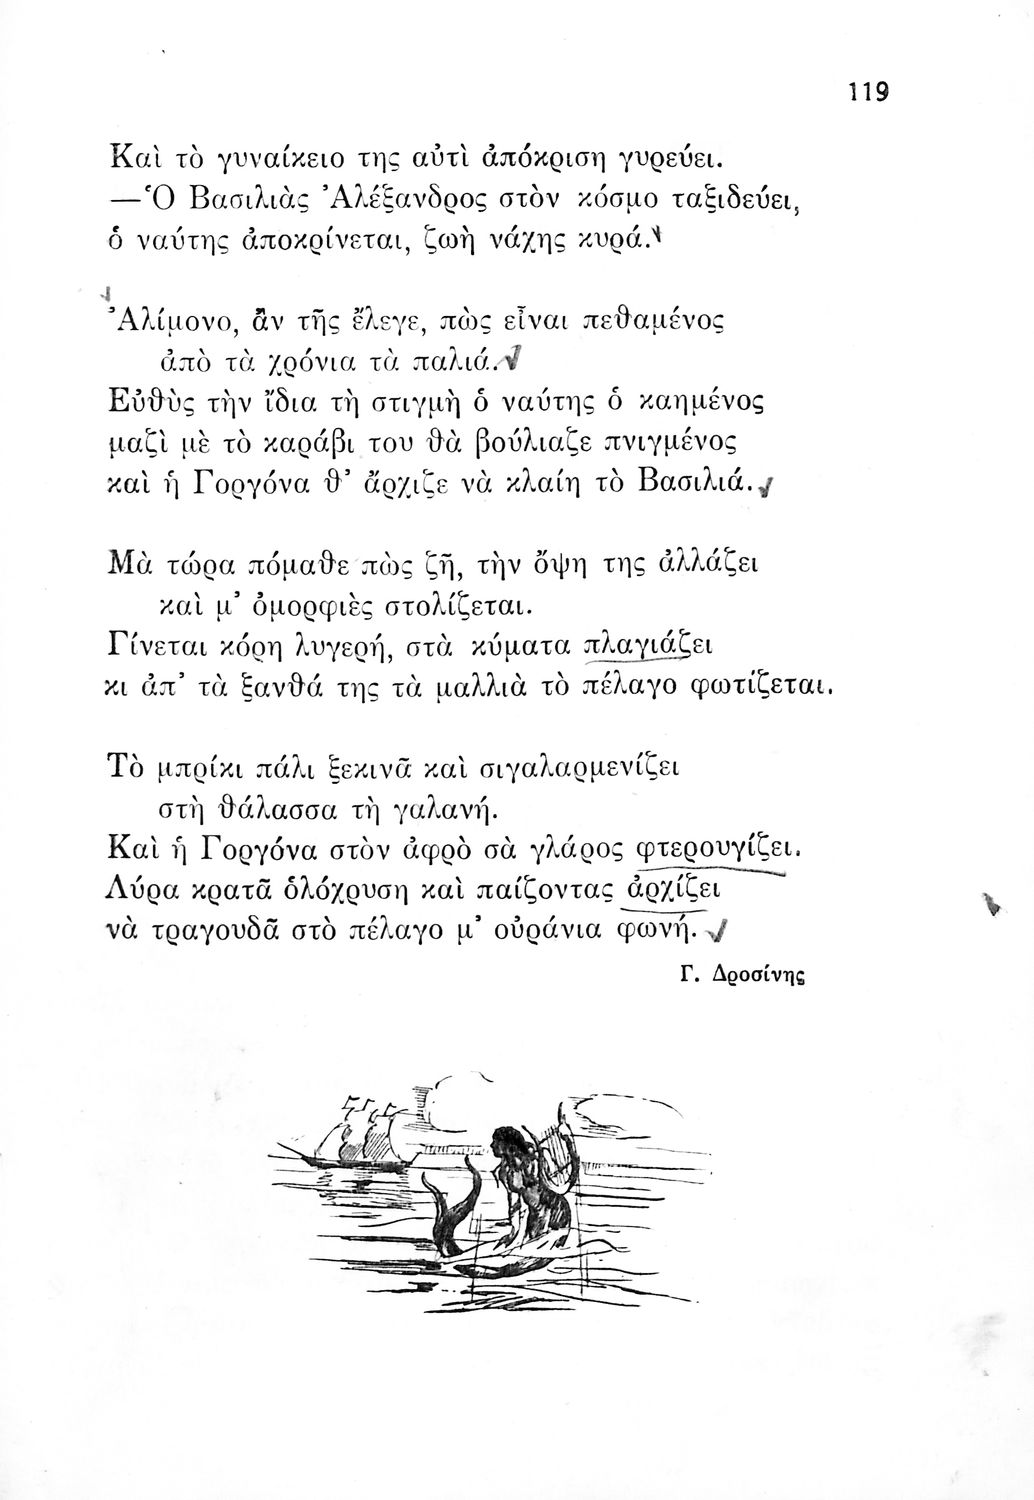 119
Καὶ τὸ γυναίκειο της αὐτὶ ἀπόκριση γυρεύει.
—Ὁ Βασιλιὰς Ἀλέξανδρος στὸν κόσμο ταξιδεύει,
ὁ ναύτης ἀποκρίνεται, ζωὴ νάχης κυρά.
Ἀλίμονο, ἂν τῆς ἔλεγε, πὼς εἶναι πεθαμένος
ἀπὸ τὰ χρόνια τὰ παλιά.
Εὐθὺς τὴν ἴδια τὴ στιγμὴ ὁ ναύτης ὁ καημένος
μαζὶ μὲ τὸ καράβι του θὰ βούλιαζε πνιγμένος
καὶ ἡ Γοργόνα θ’ ἄρχιζε νὰ κλαίη τὸ Βασιλιά.
Μὰ τώρα πόμαθε πὼς ζῆ, τὴν ὄψη της ἀλλάζει
καὶ μ’ ὀμορφιὲς στολίζεται.
Γίνεται κόρη λυγερή, στὰ κύματα πλαγιάζει
κι ἀπ’ τὰ ξανθά της τὰ μαλλιὰ τὸ πέλαγο φωτίζεται.
Τὸ μπρίκι πάλι ξεκινᾶ καὶ σιγαλαρμενίζει
στὴ θάλασσα τὴ γαλανή.
Καὶ ἡ Γοργόνα στὸν ἀφρὸ σὰ γλάρος φτερουγίζει.
Λύρα κρατᾶ ὁλόχρυση καὶ παίζοντας ἀρχίζει
νὰ τραγουδᾶ στὸ πέλαγο μ’ οὐράνια φωνή.
Γ. Δροσίνης